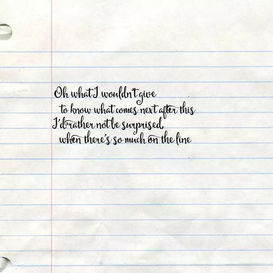 Oh what I wouldn't give
to know what comes next after this
I'd rather not be surprised,
when there's so much on the line